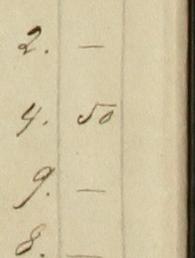 2. —
4. 50
9. —
8. —